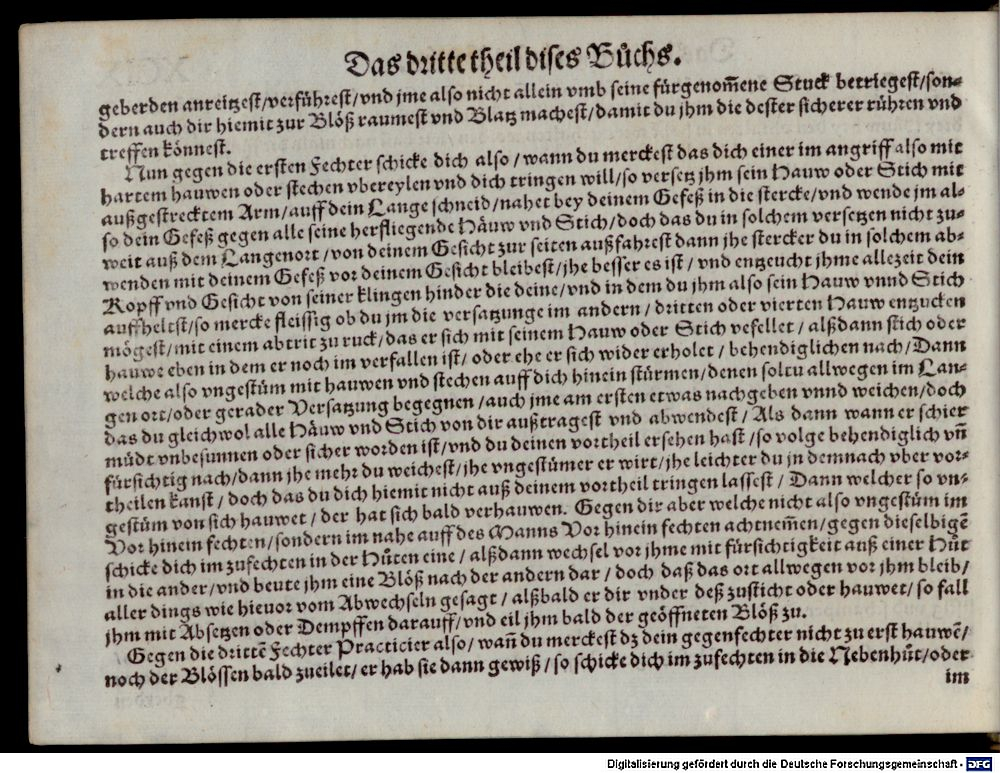 Das dritte theil dises Bůchs.
geberden anreitzest/verführest/vnd jme also nicht allein vmb seine fürgenom̃ene Stuck betriegest/son-
dern auch dir hiemit zur Blöß raumest vnd Blatz machest/damit du jhm die dester sicherer rühren vnd
treffen könnest.
Nun gegen die ersten Fechter schicke dich also/wann du merckest das dich einer im angriff also mit
hartem hauwen oder stechen vbereylen vnd dich tringen will/so versetz jhm sein Hauw oder Stich mit
außgestrecktem Arm/auff dein Lange schneid/nahet bey deinem Gefeß in die stercke/vnd wende jm al-
so dein Gefeß gegen alle seine herfliegende Häuw vnd Stich/doch das du in solchem versetzen nicht zu-
weit auß dem Langenort/von deinem Gesicht zur seiten außfahrest dann jhe stercker du in solchem ab-
wenden mit deinem Gefeß vor deinem Gesicht bleibest/jhe besser es ist/vnd entzeucht jhme allezeit dein
Kopff vnd Gesicht von seiner klingen hinder die deine/vnd in dem du jhm also sein Hauw vnnd Stich
auffheltst/so mercke fleissig ob du jm die versatzunge im andern/dritten oder vierten Hauw entzucken
mögest/mit einem abtrit zu ruck/das er sich mit seinem Hauw oder Stich vefellet/alßdann stich oder
hauwe eben in dem er noch im verfallen ist/oder ehe er sich wider erholet/behendiglichen nach/Dann
welche also vngestüm mit hauwen vnd stechen auff dich hinein stürmen/denen soltu allwegen im Lan-
gen ort/oder gerader Versatzung begegnen/auch jme am ersten etwas nachgeben vnnd weichen/doch
das du gleichwol alle Häuw vnd Stich von dir außtragest vnd abwendest/Als dann wann er schier
müdt vnbesunnen oder sicher worden ist/vnd du deinen vortheil ersehen hast/so volge behendiglich vñ
fürsichtig nach/dann jhe mehr du weichest/jhe vngestümer er wirt/jhe leichter du jn demnach vber vor-
theilen kanst/doch das du dich hiemit nicht auß deinem vortheil tringen lassest/Dann welcher so vn-
gestüm von sich hauwet/der hat sich bald verhauwen. Gegen dir aber welche nicht also vngestüm im
Vor hinein fechten/sondern im nahe auff des Manns Vor hinein fechten achtnem̃en/gegen dieselbigẽ
schicke dich im zufechten in der Hůten eine/alßdann wechsel vor jhme mit fürsichtigkeit auß einer Hůt
in die ander/vnd beute jhm eine Blöß nach der andern dar/doch daß das ort allwegen vor jhm bleib/
aller dings wie hieuor vom Abwechseln gesagt/alßbald er dir vnder deß zusticht oder hauwet/so fall
jhm mit Absetzen oder Dempffen darauff/vnd eil jhm bald der geöffneten Blöß zu.
Gegen die drittẽ Fechter Practicier also/wañ du merckest dz dein gegenfechter nicht zu erst hauwẽ/
noch der Blössen bald zueilet/er hab sie dann gewiß/so schicke dich im zufechten in die Nebenhůt/oder
im
Digitalisierung gefördert durch die Deutsche Forschungsgemeinschaft - DFG